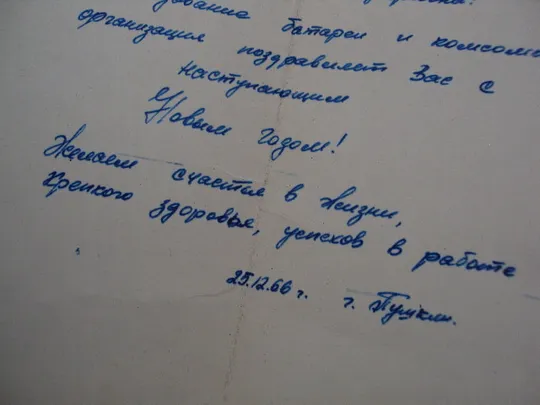 батареи и комсомо
организация поздравляет Вас с
наступающим
Новым годом!
Желаем счастья в жизни,
крепкого здоровья, успехов в работе
25.12.66 г. г. Пушкин.